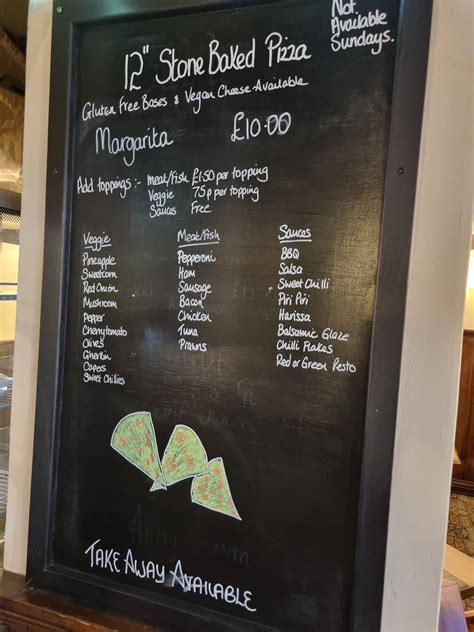 Not
Available
Sundays.
12" Stone Baked Pizza
Gluten Free Bases & Vegan Cheese Available
Margarita £10.00
Add toppings :- Meat/Fish £1.50 per topping
Veggie 75p per topping
Sauces Free
Veggie
Pineapple
Sweetcorn
Red Onion
Mushroom
Pepper
Cherrytomato
Olives
Gherkin
Capers
Sweet Chillies
Meat/Fish
Pepperoni
Ham
Sausage
Bacon
Chicken
Tuna
Prawns
Sauces
BBQ
Salsa
Sweet Chilli
Piri Piri
Harissa
Balsamic Glaze
Chilli Flakes
Red or Green Pesto
TAKE AWAY AVAILABLE